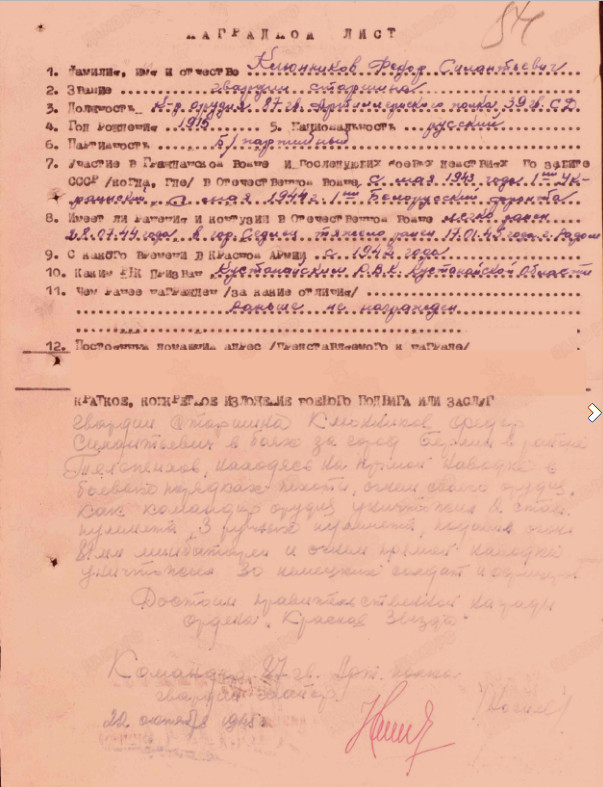 НАГРАДНОЙ ЛИСТ
1. Фамилия, имя и отчество Клюнников Федор Силантьевич
2. Звание гвардии старшина
3. Должность К-р орудия 87 гв. Артиллерийского полка 39 гв. С.Д.
4. Год рождения 1915 5. Национальность русский
6. Партийность б/партийный
7. Участие в Гражданской войне и последующих боевых действиях по защите
СССР /когда, где/ в Отечественной войне с мая 1943 года 1ый Ук-
раинский, с мая 1944 г. 1ый Белорусский фронта
8. Имеет ли ранения и контузии в Отечественной войне легко ранен
28.07.44 года в гор. Седлец тяжело ранен 17.01.45 года г. Радом
9. С какого времени в Красной Армии с 1942 года
10. Каким РВК призван Кустанайским Р.В.К. Кустанайской области
11. Чем ранее награжден /за какие отличия/
раньше не награжден
12. Постоянный домашний адрес /представляемого к награде/
КРАТКОЕ, КОНКРЕТНОЕ ИЗЛОЖЕНИЕ БОЕВОГО ПОДВИГА ИЛИ ЗАСЛУГ
гвардии старшина Клюнников Федор
Силантьевич в боях за город Берлин в районе
находясь на прямой наводке в
боевых порядках пехоты, огнем своего орудия,
как командир орудия уничтожил 2 стан.
пулемета, 3 ручных пулемета, подавил огонь
батареи и огнем прямой наводки
уничтожил 30 немецких солдат и офицеров
Достоин правительственной награды
ордена "Красная Звезда".
Командир 87 гв. Арт. полка
гвардии майор
22 октября 1945 г.